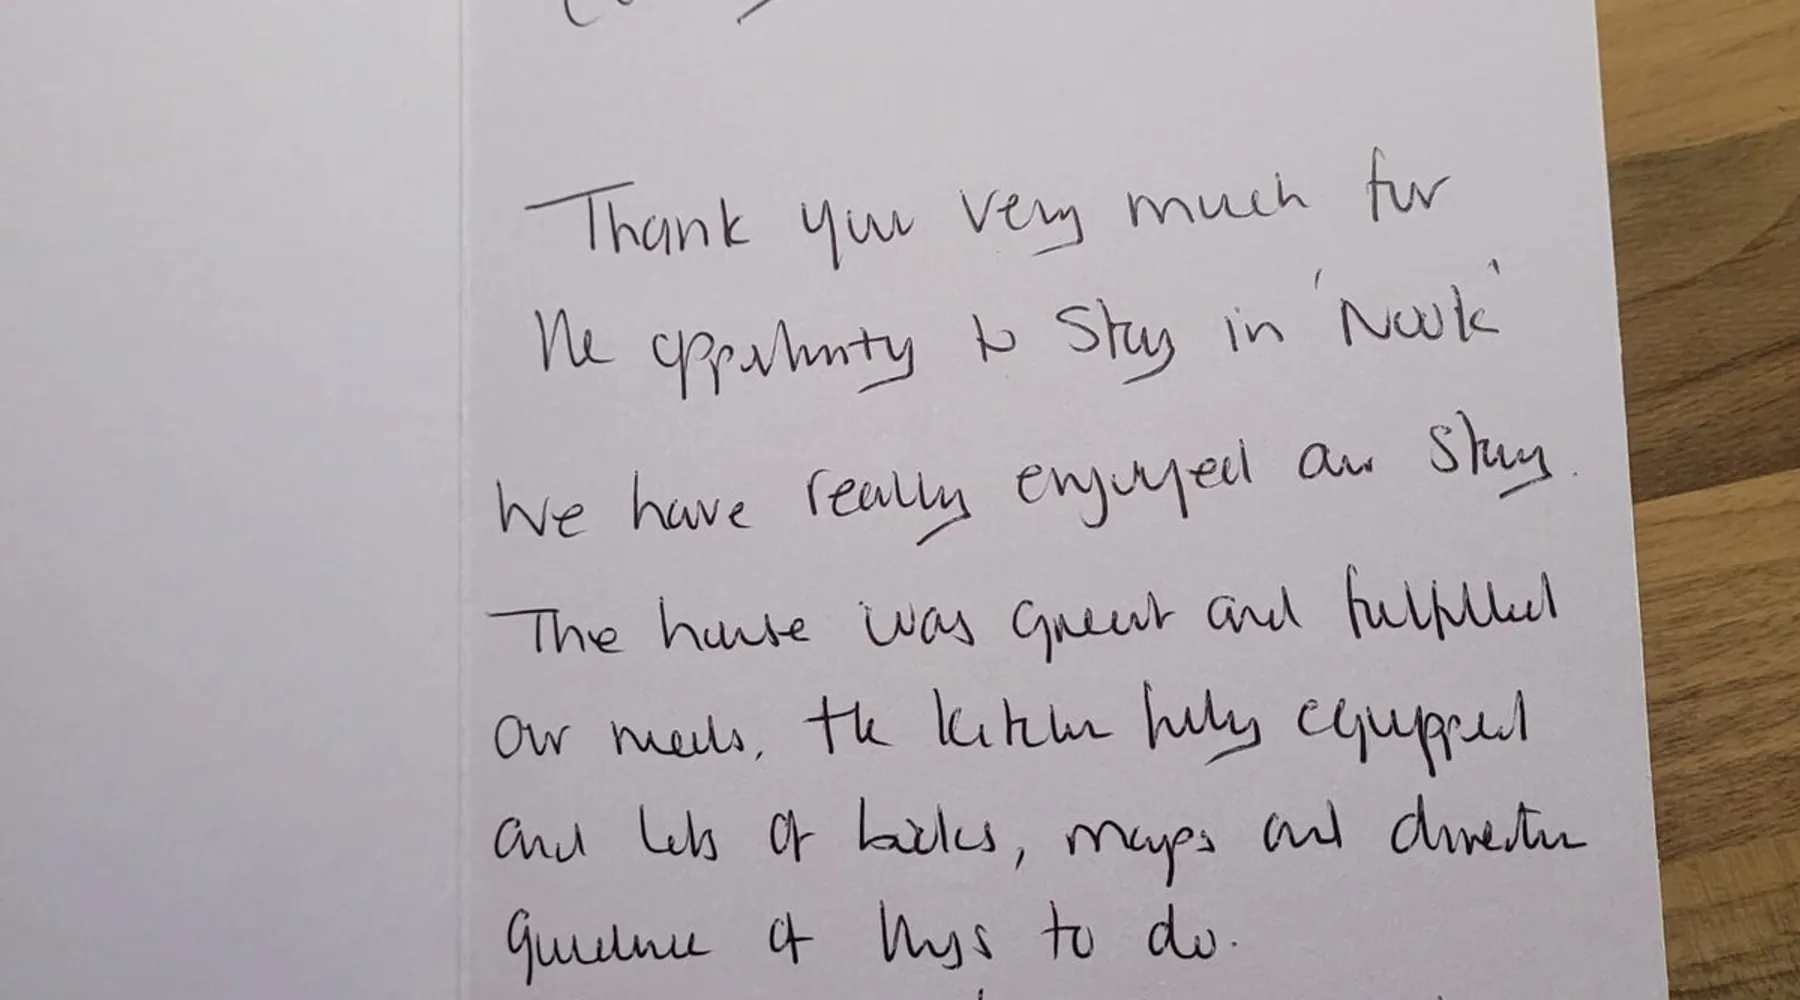 Thank you very much for
the opportunity to stay in 'Nook'
We have really enjoyed our stay.
The house was great and fulfilled
our needs, the kitchen fully equipped
and lots of books, maps and direction
guidance of things to do.